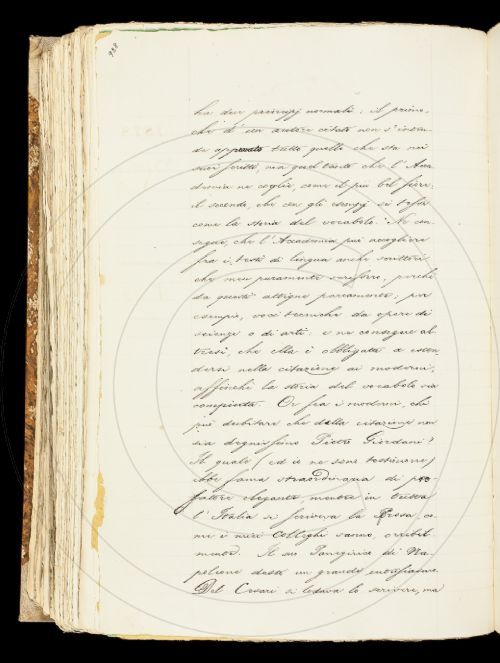 928
ha due principj normali; il primo,
che di un autore citato non s'inten-
de approvato tutto quello che sta nei
suoi scritti, ma quel tanto che l'Acca-
demia ne coglie, come il più bel fiore;
il secondo, che con gli esempj si tesse
come la storia del vocabolo. Ne con-
segue, che l'Accademia può accogliere
fra i testi di lingua anche scrittori
che men puramente scrissero, perché
da questi attigne parcamente; per
esempio, voci tecniche da opere di
scienze o di arti: e ne consegue al-
tresì, che Ella è obbligata a esten-
dersi nella citazione ai moderni,
affinché la storia del vocabolo sia
compiuta. Or fra i moderni, chi
può dubitare che della citazione non
sia degnissimo Pietro Giordani?
Il quale (ed io ne sono testimone)
ebbe fama straordinaria di pro-
satore elegante, mentre in tutta
l'Italia si scriveva la Prosa, co-
me i miei Colleghi sanno, orribil-
mente. Il suo Panegirico di Na-
poleone destò un grande entusiasmo.
Del Cesari si lodava lo scrivere, ma